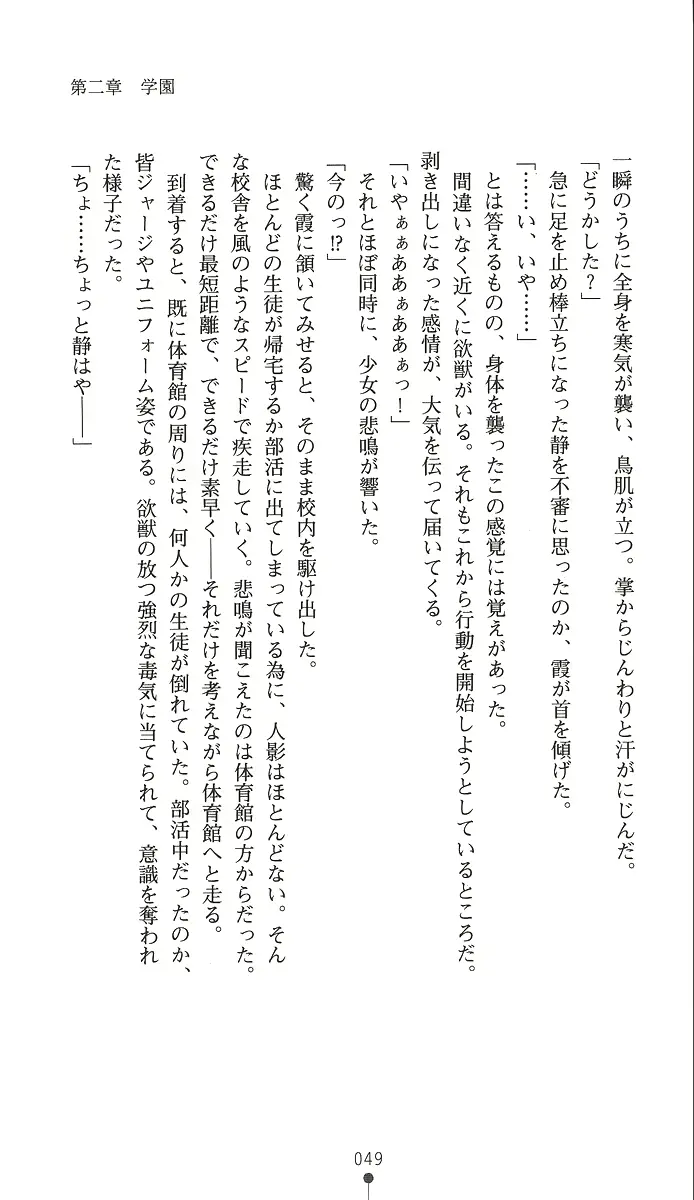 第二章　学園
一瞬のうちに全身を寒気が襲い、鳥肌が立つ。掌からじんわりと汗がにじんだ。
「どうかした？」
急に足を止め棒立ちになった静を不審に思ったのか、霞が首を傾げた。
「……い、いや……」
とは答えるものの、身体を襲ったこの感覚には覚えがあった。
間違いなく近くに欲獣がいる。それもこれから行動を開始しようとしているところだ。
剥き出しになった感情が、大気を伝って届いてくる。
「いやぁぁああぁああぁっ！」
それとほぼ同時に、少女の悲鳴が響いた。
「今のっ!?」
驚く霞に頷いてみせると、そのまま校内を駆け出した。
ほとんどの生徒が帰宅するか部活に出てしまっている為に、人影はほとんどない。そん
な校舎を風のようなスピードで疾走していく。悲鳴が聞こえたのは体育館の方からだった。
できるだけ最短距離で、できるだけ素早く――それだけを考えながら体育館へと走る。
到着すると、既に体育館の周りには、何人かの生徒が倒れていた。部活中だったのか、
皆ジャージやユニフォーム姿である。欲獣の放つ強烈な毒気に当てられて、意識を奪われ
た様子だった。
「ちょ……ちょっと静はや――」
049